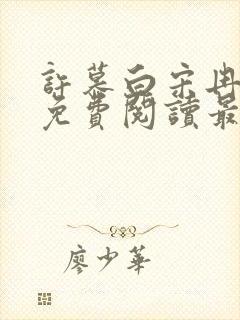 許慕白宋冉
免費閱讀最
廖少華